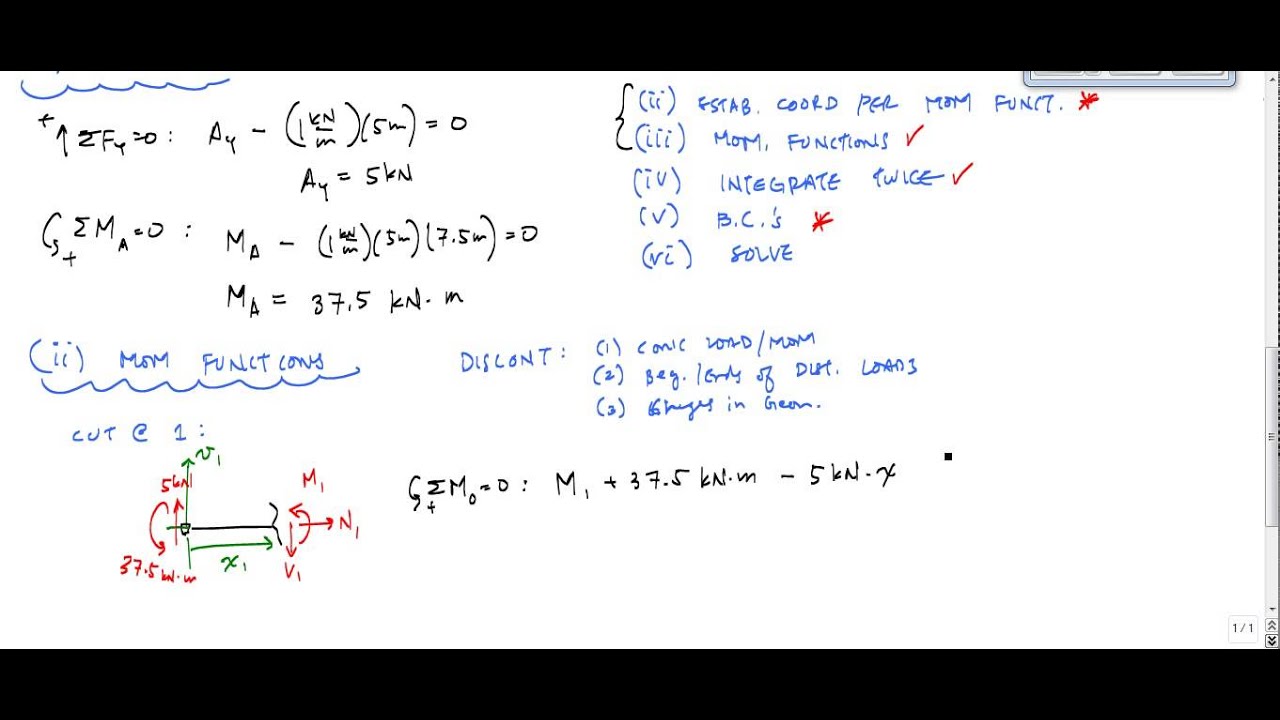 +↑ ΣFy=0: Ay − (1 kN/m)(5m) = 0
Ay = 5kN
+ ΣM_A=0: M_A − (1 kN/m)(5m)(7.5m) = 0
M_A = 37.5 kN·m
{(ii) ESTAB. COORD PER MOM FUNCT. *
(iii) MOM. FUNCTIONS ✓
(iv) INTEGRATE TWICE ✓
(V) B.C.'s *
(vi) SOLVE
(ii) MOM FUNCTIONS
DISCONT: (1) CONC LOAD/MOM
(2) Beg./Ends of Dist. LOADS
(3) Changes in Geom.
CUT @ 1:
v₁
5kN
M₁
N₁
37.5 kN·m
x₁
V₁
+ ΣM₀=0: M₁ + 37.5 kN·m − 5 kN·x
1 / 1